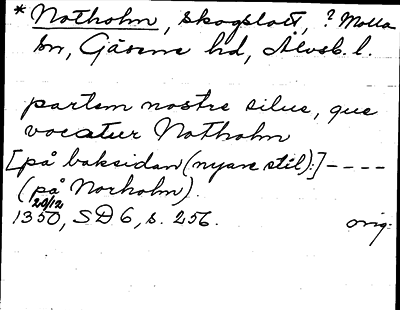 * Notholm, skogslott, ? Molla
sn, Gäsene hd, Älvsb. l.
partem nostre silue, que
vocatur Notholm
[på baksidan (nyare stil):] ----
(på Norholm).
20/12
1350, SD 6, s. 256. orig.